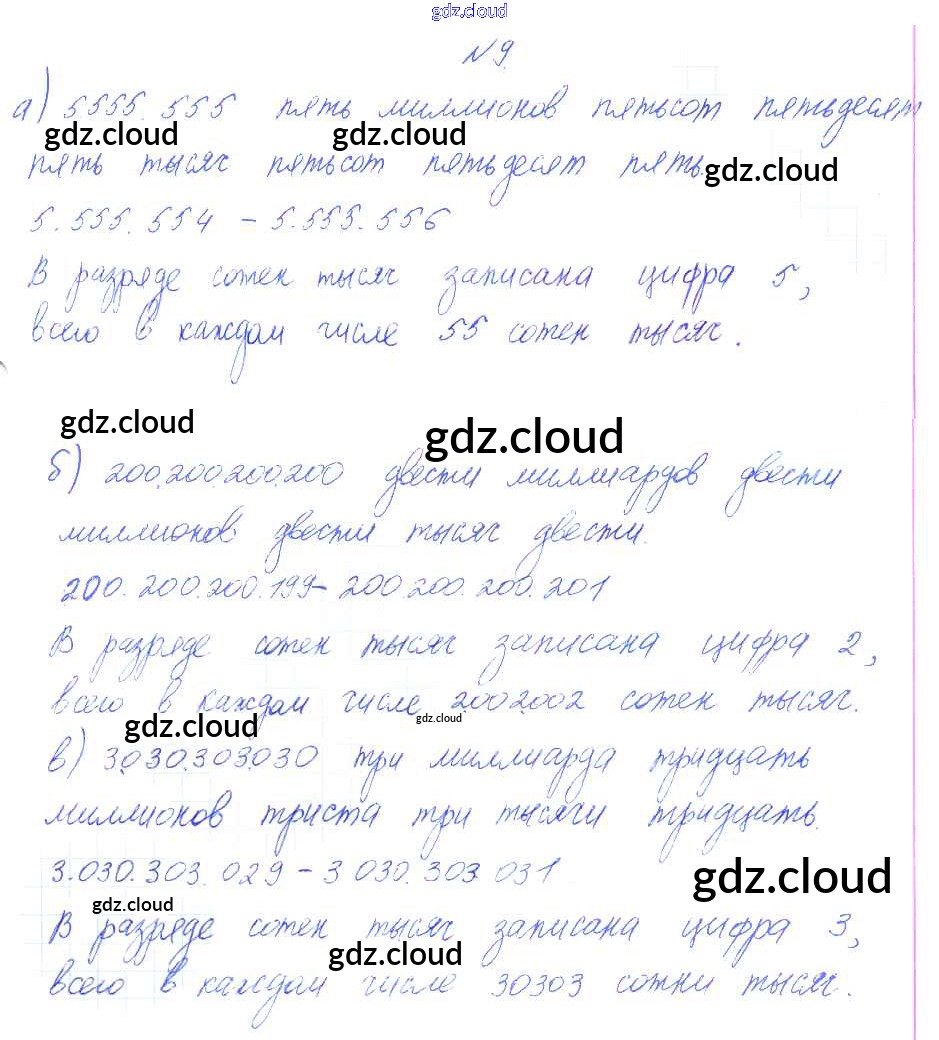 gdz.cloud
№9.
а) 5555.555 пять миллионов пятьсот пятьдесят
gdz.cloud gdz.cloud
пять тысяч пятьсот пятьдесят пять.
gdz.cloud
5.555.554 - 5.555.556
В разряде сотен тысяч записана цифра 5,
всего в каждом числе 55 сотен тысяч.
gdz.cloud gdz.cloud
б) 200.200.200.200 двести миллиардов двести
миллионов двести тысяч двести.
200.200.200.199 - 200.200.200.201
В разряде сотен тысяч записана цифра 2,
всего в каждом числе 2002002 сотен тысяч.
gdz.cloud gdz.cloud
в) 3.030.303.030 три миллиарда тридцать
миллионов триста три тысячи тридцать.
3.030.303.029 - 3 030.303 031
gdz.cloud
gdz.cloud
В разряде сотен тысяч записана цифра 3,
gdz.cloud
всего в каждом числе 30303 сотни тысяч.